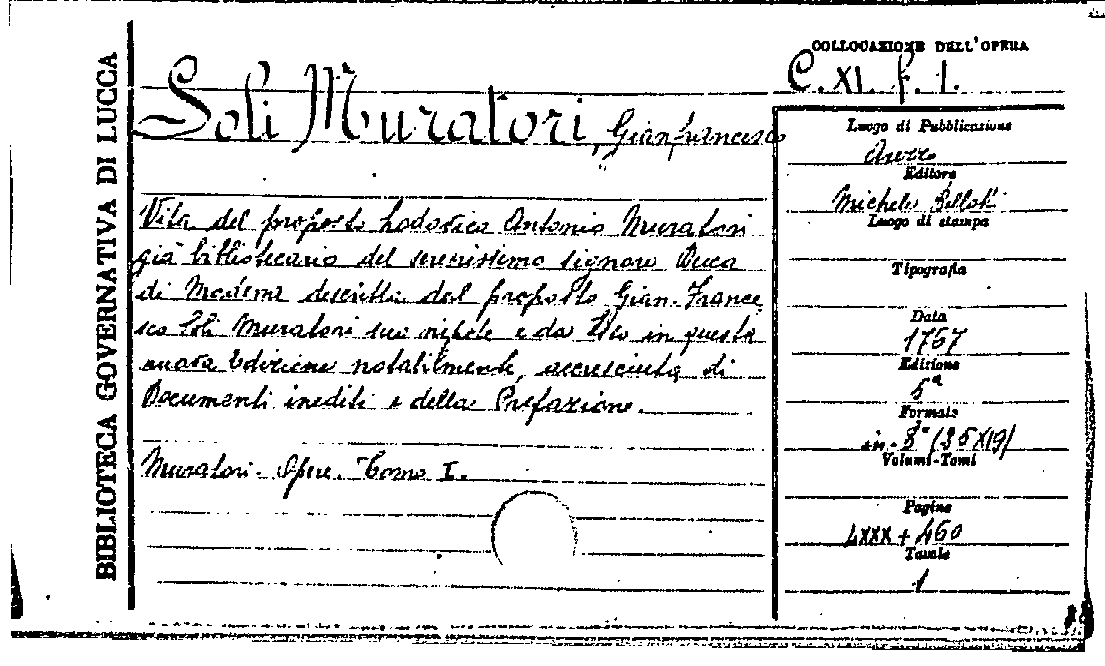 BIBLIOTECA GOVERNATIVA DI LUCCA
COLLOCAZIONE DELL'OPERA
C. XI. f. 1.
Soli Muratori, Gianfrancesco
Vita del proposto Lodovico Antonio Muratori
già bibliotecario del serenissimo signore Duca
di Modena descritta dal proposto Gian-France
sco Soli Muratori suo nipote e da in questa
nuova Edizione notabilmente, accresciuta di
Documenti inediti e della Prefazione.
Muratori - Opere. Tomo I.
Luogo di Pubblicazione
Arezzo
Editore
Michele Bellotti
Luogo di stampa
Tipografia
Data
1767
Edizione
5ª
Formato
in-8° (25X19)
Volumi-Tomi
Pagine
LXXX + 460
Tavole
1